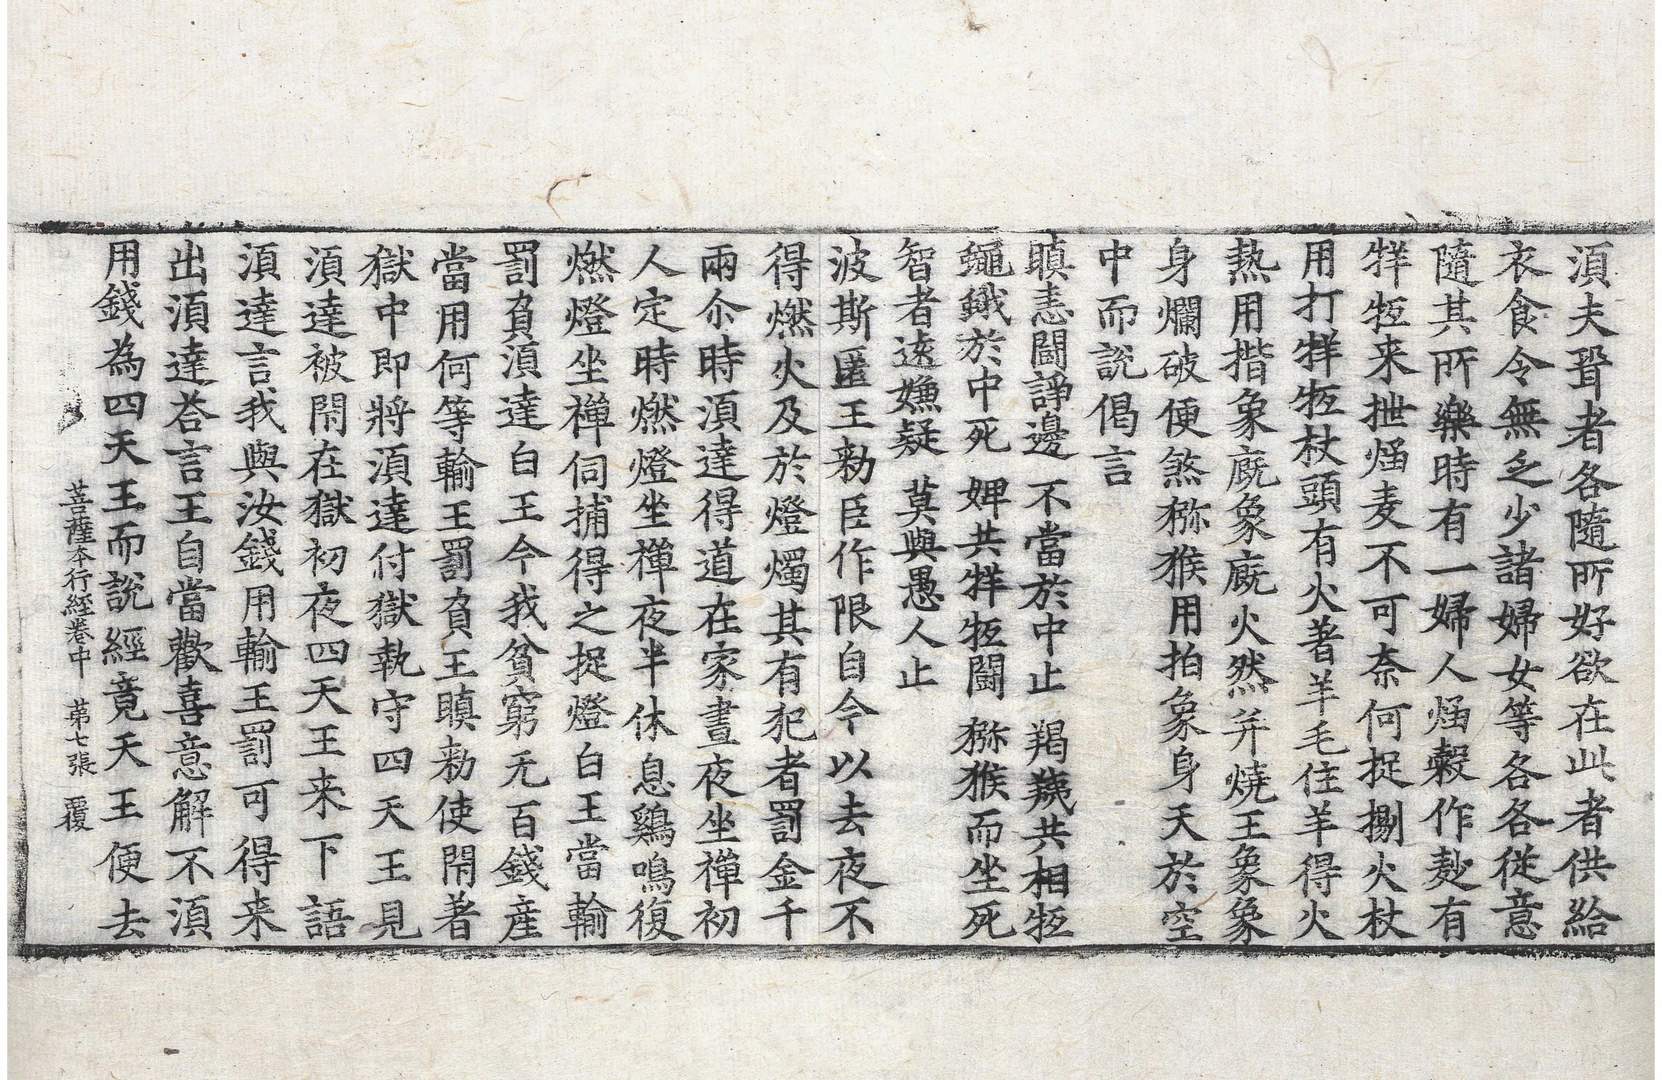 湏夫聟者各隨所好欲在此者供給
衣食令無乏少諸婦女等各各從意
隨其所樂時有一婦人㷶糓作麨有
牂牨来抴㷶麦不可奈何捉搊火杖
用打牂牨杖頭有火著羊毛住羊得火
熱用揩象廐象廐火然并燒王象象
身爛破便煞猕猴用拍象身天於空
中而說偈言
瞋恚鬪諍邊 不當於中止 羯羠共相牨
蠅蛾於中死 婢共牂牨鬪 猕猴而坐死
智者遠嫌疑 莫與愚人止
波斯匿王勑臣作限自今以去夜不
得燃火及於燈燭其有犯者罰金千
兩尒時湏達得道在家晝夜坐禪初
人定時燃燈坐禪夜半休息鷄鳴復
燃燈坐禪伺捕得之捉燈白王當輸
罰負湏達白王今我貧窮无百錢産
當用何等輸王罰負王瞋勑使閇著
獄中即將湏達付獄執守四天王見
湏達被閇在獄初夜四天王来下語
湏達言我與汝錢用輸王罰可得来
出湏達荅言王自當歡喜意解不湏
用錢為四天王而說經竟天王便去
菩薩本行經卷中 苐七張 覆